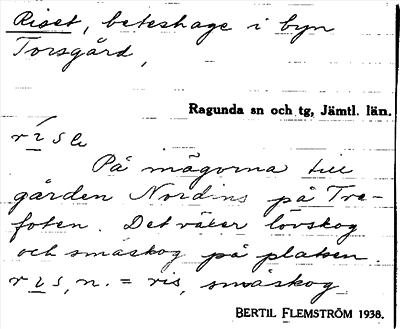 Riset, beteshage i byn
Torsgård,
Ragunda sn och tg, Jämtl. län.
På mägorna till
gården Nordins på Tre-
foten. Det växer lövskog
och småskog på platsen.
rıs, n. = ris, småskog
BERTIL FLEMSTRÖM 1938.